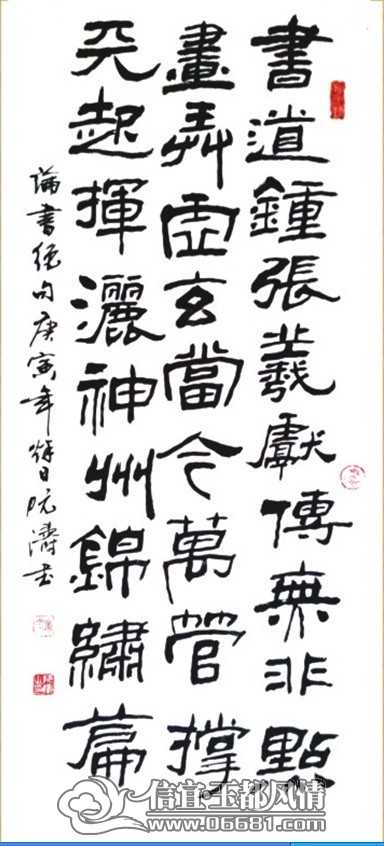 書道鍾張羲獻傳無非點
畫弄虛玄當今萬管撐
天起揮灑神州錦繡篇
論書絕句庚寅年 日阮濤書
信宜玉都风情
www.06681.com